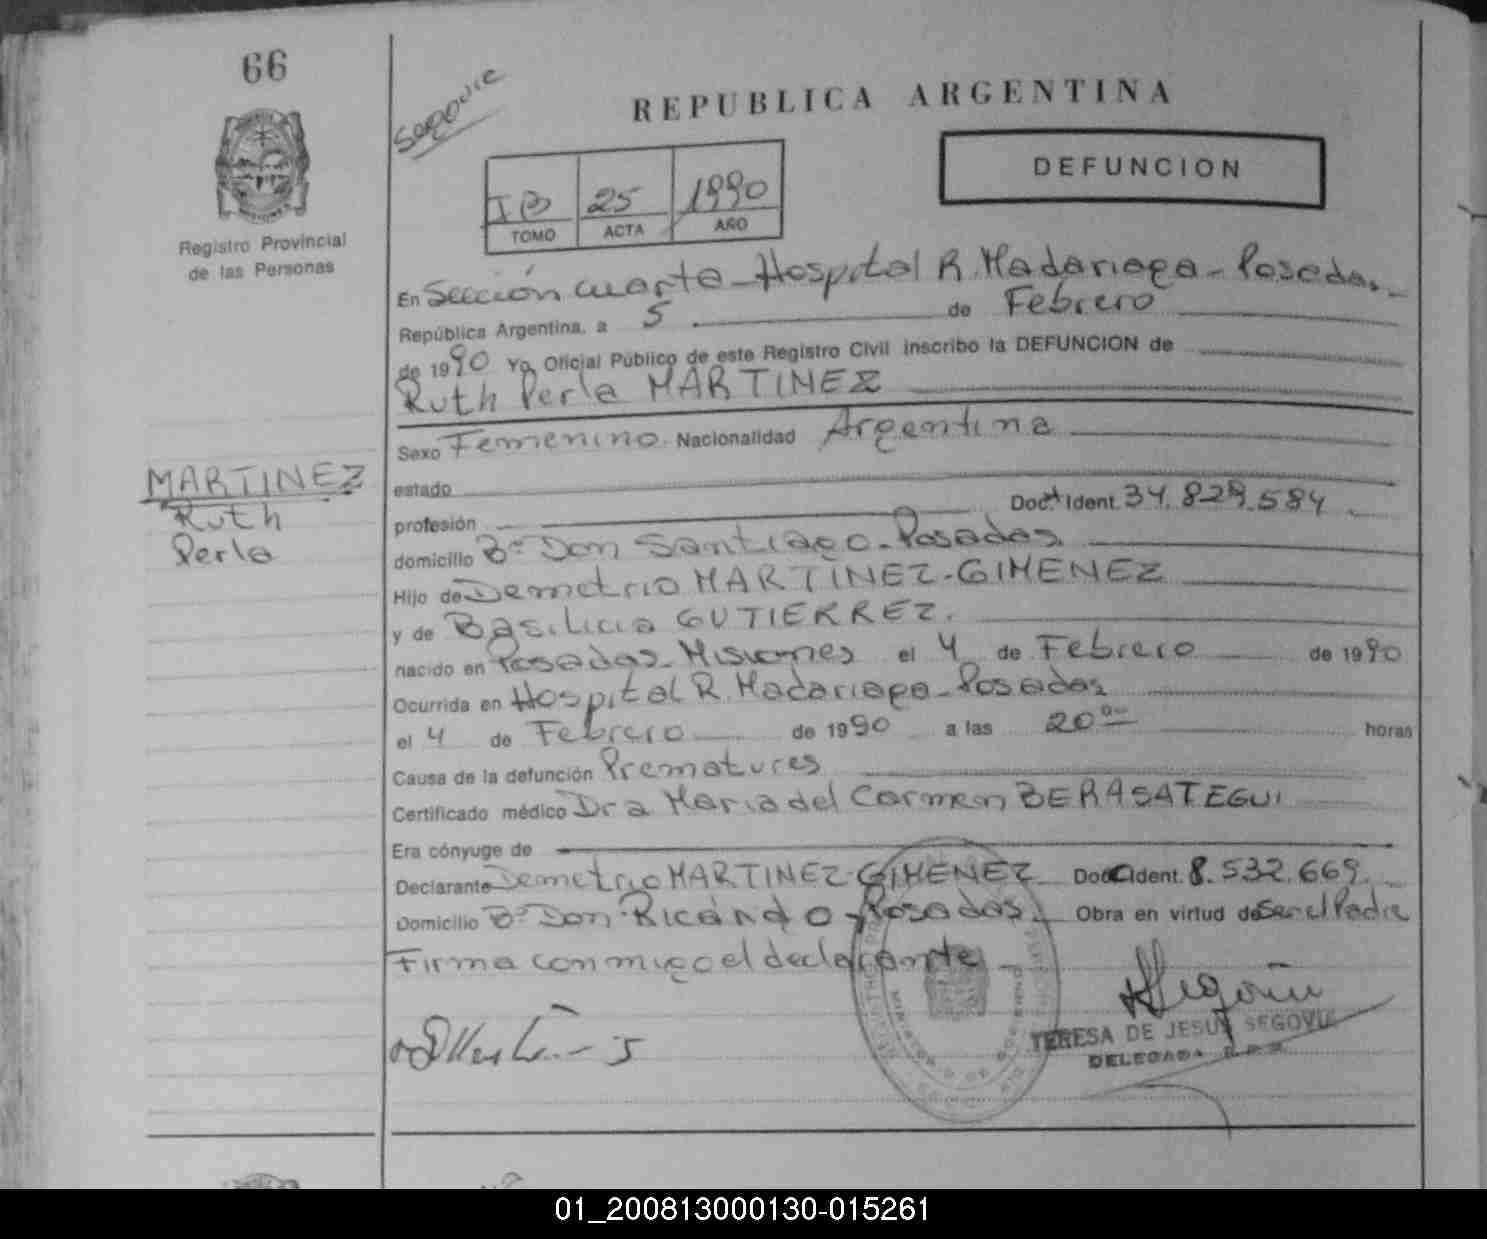 66
Segovie
REPUBLICA ARGENTINA
DEFUNCION
IB 25 1990
TOMO ACTA AÑO
Registro Provincial
de las Personas
En Sección cuarta - Hospital R. Madariaga - Posadas.
República Argentina, a 5 de Febrero
de 1990 Yo, Oficial Público de este Registro Civil inscribo la DEFUNCION de
Ruth Perla MARTINEZ
Sexo Femenino. Nacionalidad Argentina
MARTINEZ
Ruth
Perla
estado
profesión Doc. Ident. 34.829.584
domicilio Bº Don Santiago - Posadas
Hijo de Demetrio MARTINEZ-GIMENEZ
y de Basilicia GUTIERREZ.
nacido en Posadas Misiones el 4 de Febrero de 1990
Ocurrida en Hospital R. Madariaga - Posadas
el 4 de Febrero de 1990 a las 20 00 horas
Causa de la defunción Prematurez
Certificado médico Dra Maria del Carmen BERASATEGUI
Era cónyuge de
Declarante Demetrio MARTINEZ-GIMENEZ Doc. Ident. 8.532.669.
Domicilio Bº Don Ricardo - Posadas. Obra en virtud de Ser el Padre
Firma conmigo el declarante
TERESA DE JESUS SEGOVIA
DELEGADA R.P.P.
01_200813000130-015261